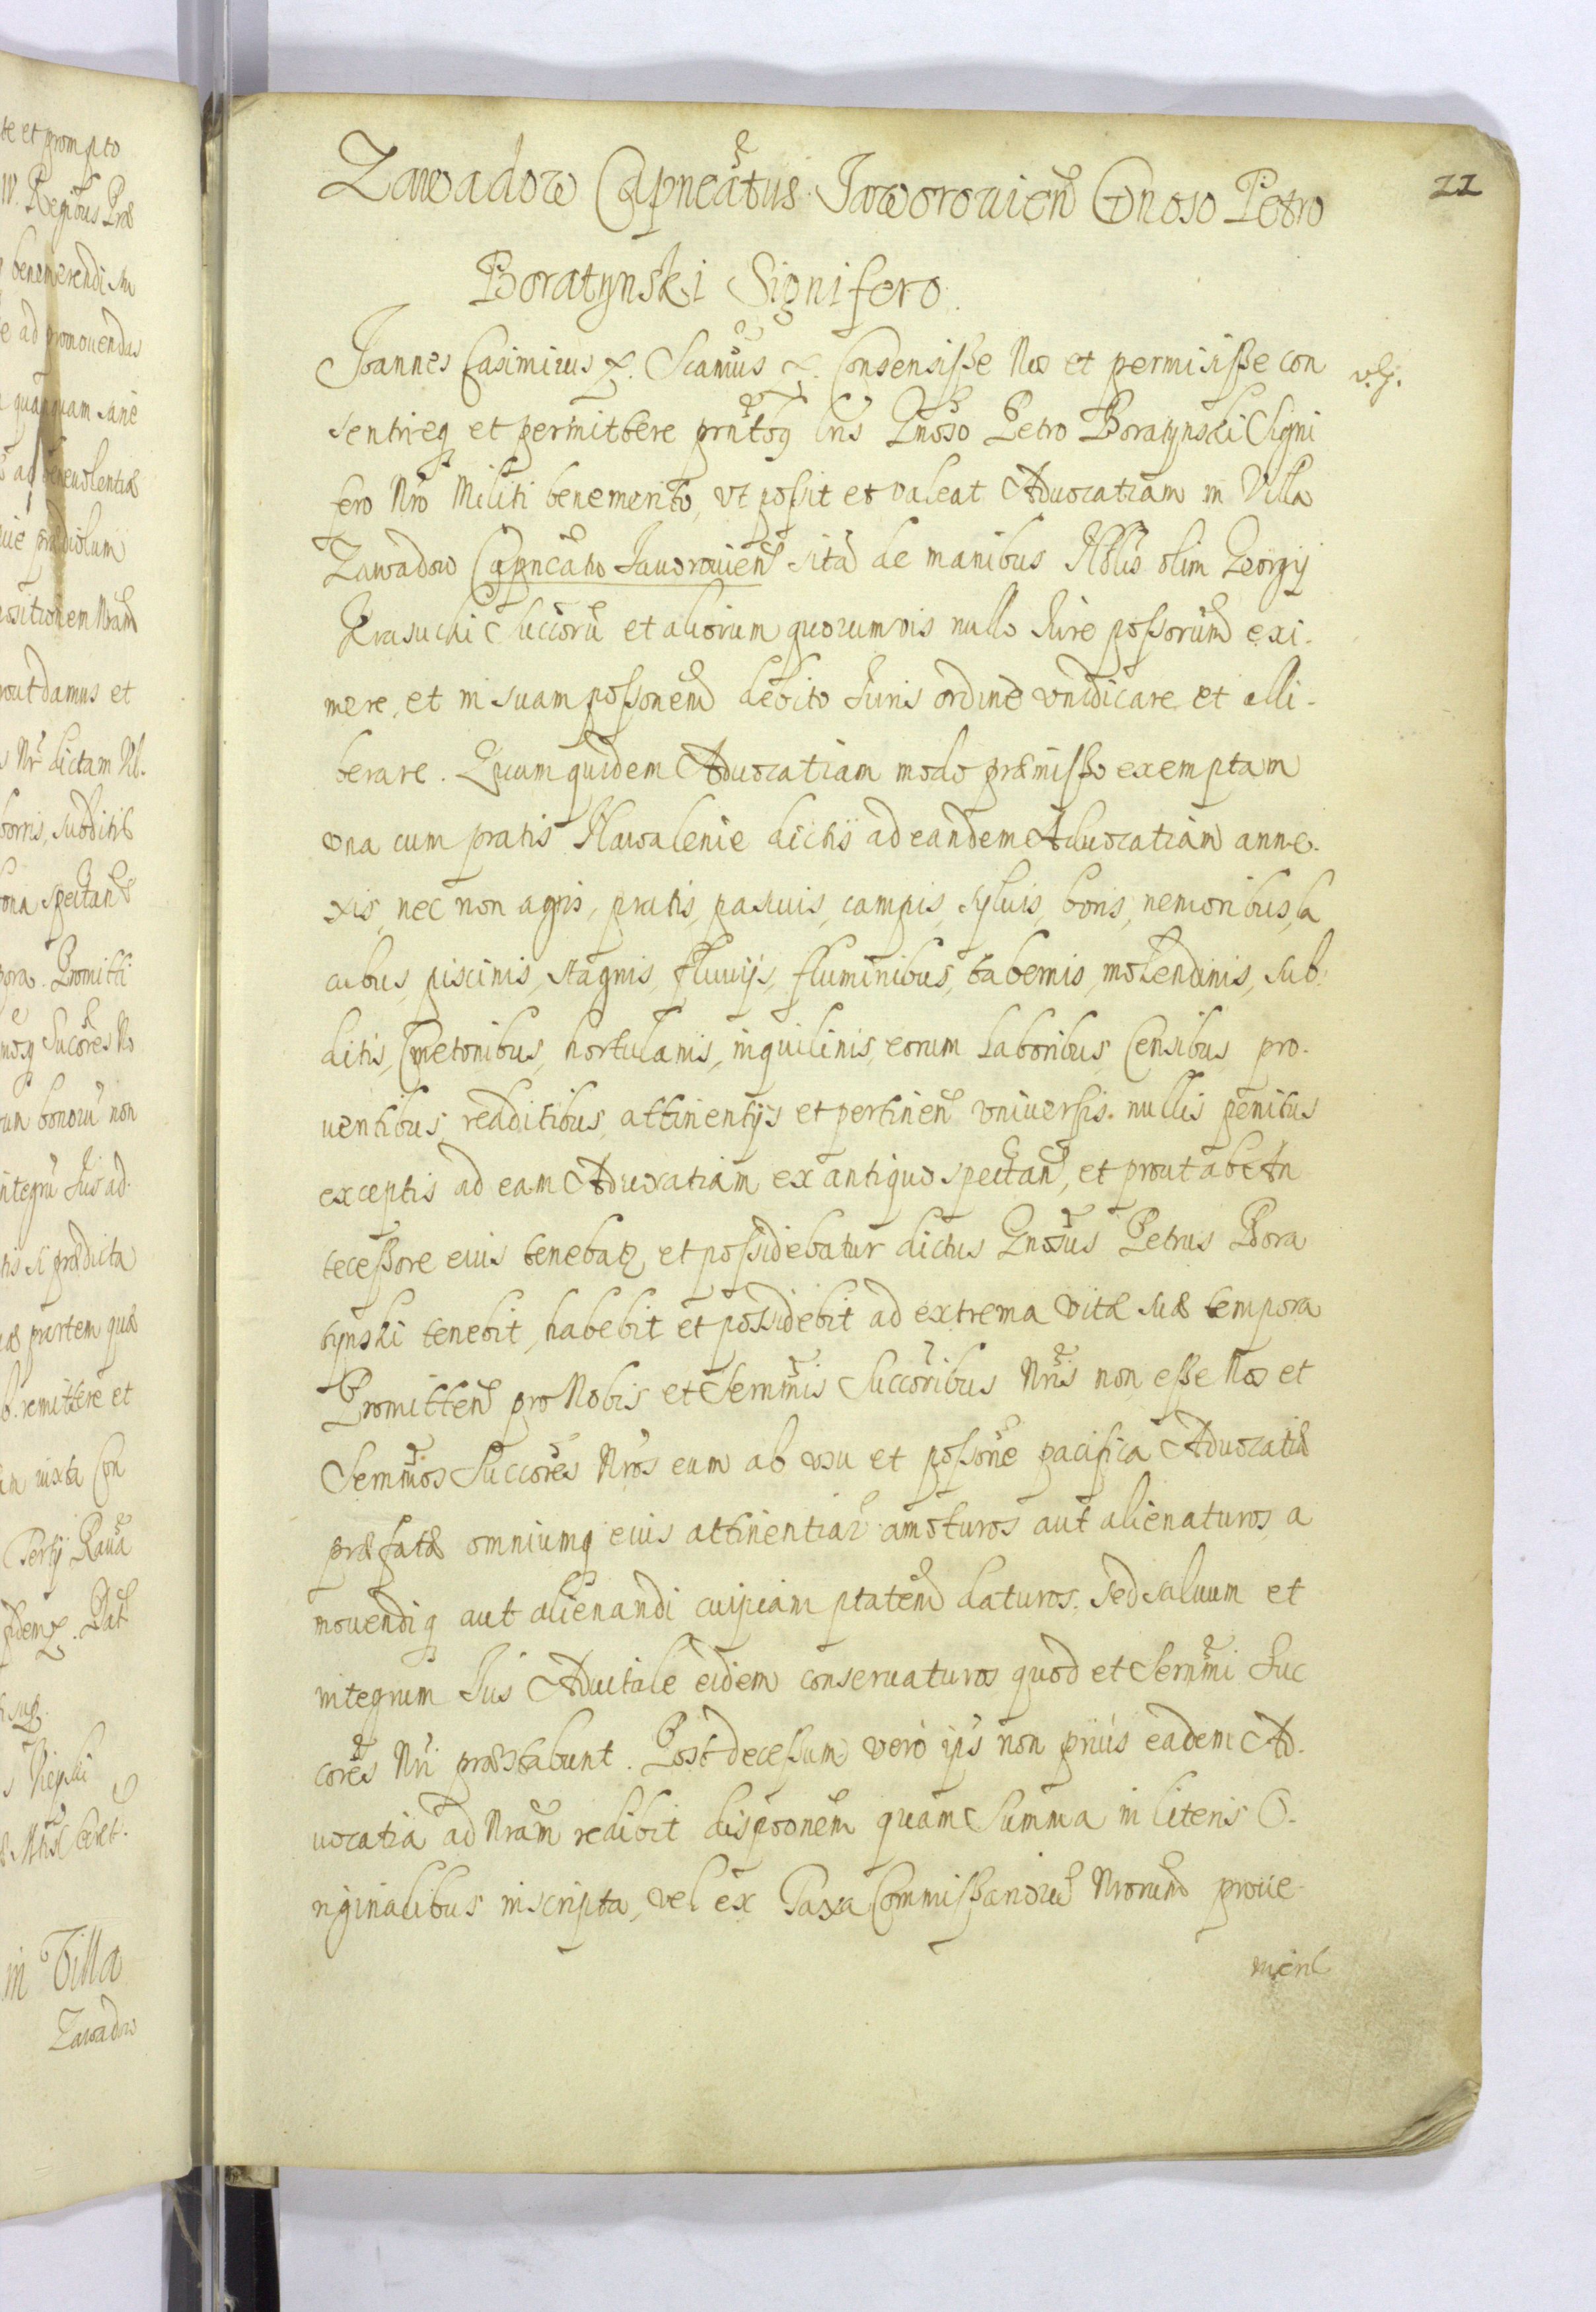 te et prompto
W. Regibus Præ
benemerendi
e ad promouendas
quamquam sane
beneuolentiæ
prædiolum
positionem Nram
prout damus et
Nr dictam
borris, subditis
bona spectan
pora. Promitti
mosq Sucores No
bonorũ non
integrũ Ius ad
tis si prædicta
partem quæ
remittere et
iuxta Con
Raua
fidem. Dat
in Villa
Zawadow
22
Zawadow Capneatus Jaworouien Gnoso Petro
Boratynski Signifero.
Joannes Casimirus &. Scamus &. Consensisse Nos et permisisse con
sentireq et permittere prntbq lris Gnoso Petro Boratynski Signi
fero Nro Militi benemerito, vt possit et valeat Aduocatiam in Villa
Zawadow Capneatu Jauorouien sitã de manibus Nblis olim Georgij
Krasucki Succorũ et aliorum quorumuis nullo Iure possorum exi-
mere, et in suam possonem debito Iuris ordine vindicare et elli-
berare. Quam quidem Aduocatiam modo præmisso exemptam
vna cum pratis Nawalenie dictis ad eandem Aduocatiam anne-
xis, nec non agris, pratis, pascuis, campis, syluis, boris, nemoribus, la
cubus, piscinis, stagnis, fluuijs, fluminibus, tabernis, molendinis, sub-
ditis, Cmetonibus, hortulanis, inquilinis, eorum laboribus, Censibus, pro-
uentibus, redditibus, attinentijs et pertinen vniuersis. nullis penitus
exceptis ad eam Aduocatiam ex antiquo spectan, et prout ab An
tecessore eius tenebatr et possidebatur dictus Gnosus Petrus Bora
tynski tenebit, habebit et possidebit ad extrema vitæ suæ tempora
Promitten pro Nobis et Sermis Succoribus Nris non esse Nos et
Sermos Succores Nros eum ab vsu et possone pacifica Aduocatiæ
præfatæ omniumq eius attinentiar amoturos aut alienaturos a
mouendiq aut alienandi cuipiam ptatem daturos. sed saluum et
integrum Ius Aduitale eidem conseruaturos quod et Sermi Suc
cores Nri præstabunt. Post decessum verò ips non priùs eadem Ad-
uocatia ad Nram redibit disponem quam Summa in literis O-
riginalibus inscripta, vel ex Taxa Commissariorũ Nrorum proue-
nien